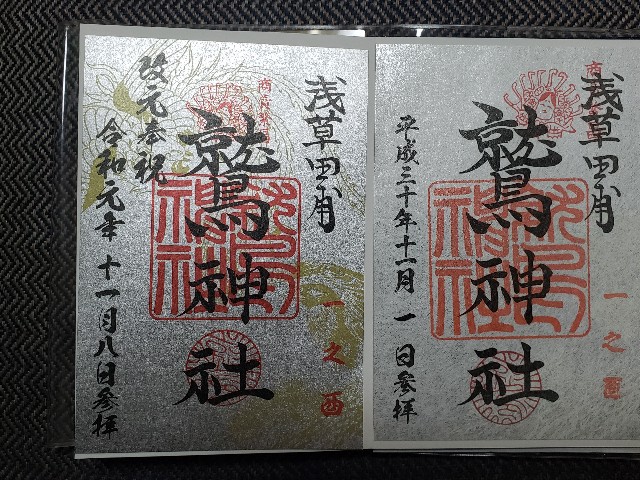 浅草田甫
一之酉
鷲神社
平成三十年十一月一日参拝
浅草田甫
一之酉
鷲神社
改元奉祝
令和元年十一月八日参拝